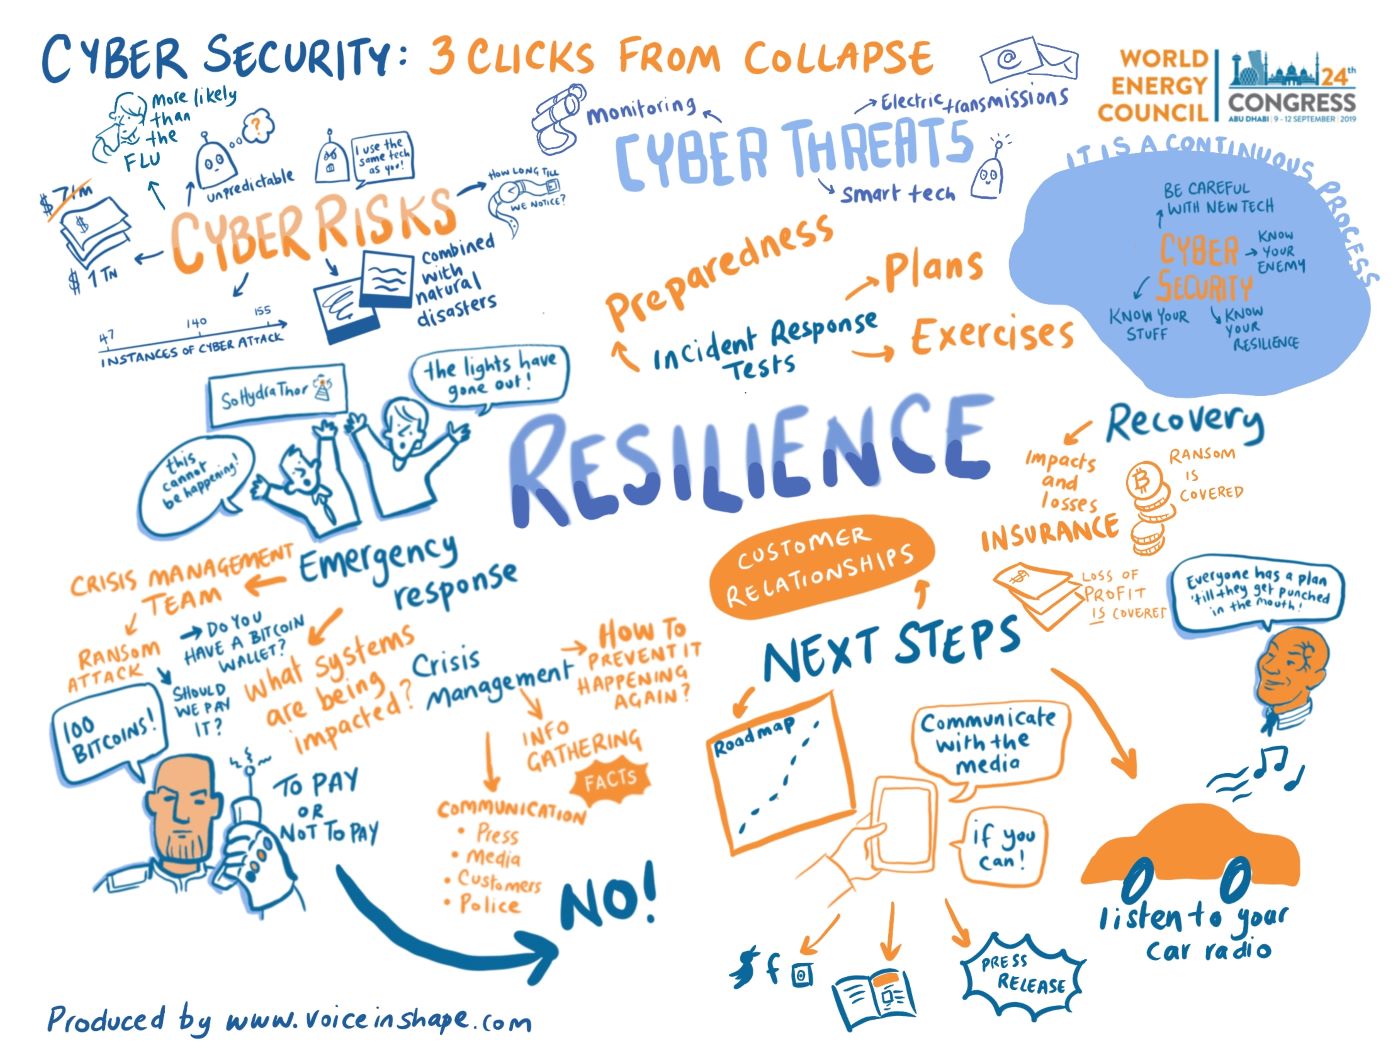 CYBER SECURITY: 3 CLICKS FROM COLLAPSE
WORLD
ENERGY
COUNCIL
24th
CONGRESS
ABU DHABI | 9 - 12 SEPTEMBER | 2019
more likely
than
the
FLU
?
unpredictable
I use the
same tech
as you!
HOW LONG TILL
WE NOTICE?
$ 71m
$
$ 1 TN
CYBER RISKS
combined
with
natural
disasters
47
140
155
INSTANCES OF CYBER ATTACK
monitoring
Electric transmissions
@
CYBER THREATS
smart tech
IT IS A CONTINUOUS PROCESS
BE CAREFUL
WITH NEW TECH
CYBER
SECURITY
KNOW
YOUR
ENEMY
KNOW YOUR
STUFF
KNOW
YOUR
RESILIENCE
Preparedness
Plans
Incident Response
Tests
Exercises
SoHydraThor
the lights have
gone out!
this
cannot
be happening!
RESILIENCE
Recovery
Impacts
and
losses
INSURANCE
RANSOM
IS
COVERED
$
LOSS OF
PROFIT
IS COVERET
Everyone has a plan
'till they get punched
in the mouth!
Emergency
response
CRISIS MANAGEMENT
TEAM
RANSOM
ATTACK
DO YOU
HAVE A BITCOIN
WALLET?
SHOULD
WE PAY
IT?
100
BITCOINS!
TO PAY
OR
NOT TO PAY
NO!
What systems
are being
impacted?
Crisis
Management
HOW TO
PREVENT IT
HAPPENING
AGAIN?
INFO
GATHERING
FACTS
COMMUNICATION
• Press
• Media
• Customers
• Police
CUSTOMER
RELATIONSHIPS
NEXT STEPS
Roadmap
Communicate
with the
media
if you
can!
f
PRESS
RELEASE
listen to your
car radio
Produced by www.voiceinshape.com